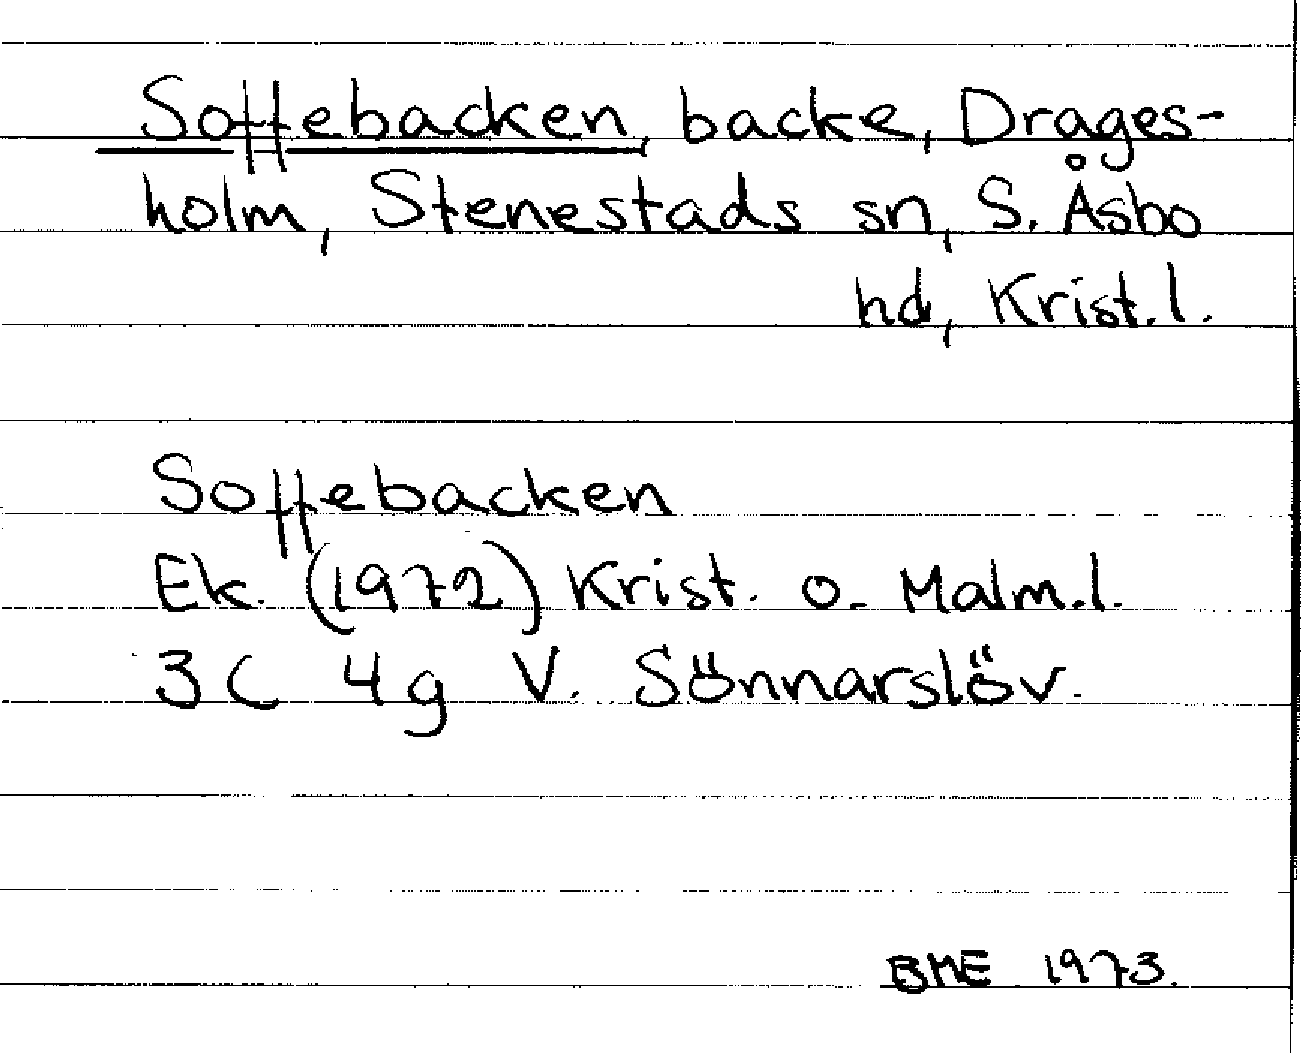 Soffebacken, backe, Drages-
holm, Stenestads sn, S. Åsbo
hd, Krist. l.
Soffebacken
Ek. (1972) Krist. o. Malm. l.
3C 4g V. Sönnarslöv.
BME 1973.